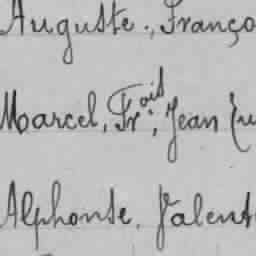 Auguste., Franço
Marcel, Fr^ois, Jean
Alphonse, Valent